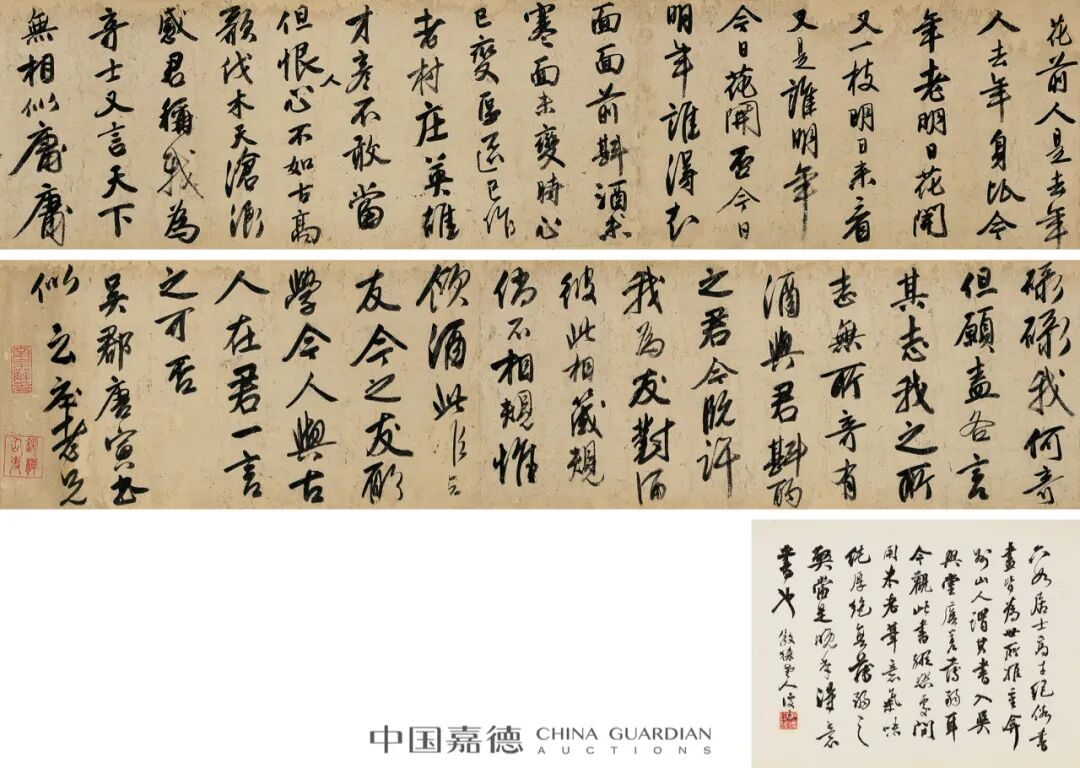 花前人是去年
人去年身比今
年老明日花開
又一枝明日來看
又是誰明年
今日花開否今日
明年誰得知
面面前斟酒未
寒面未變時心
已變區區已作
老村庄英雄
才彥不敢當
但恨人心不如古高
歌伐木天滄浪
感君稱我為
奇士又言天下
無相似庸庸
碌碌我何奇
但願盡各言
其志我之所
志無所奇有
酒與君斟酌
之君今既許
我為友對酒
彼此相箴規
倘不相規惟
酒此
友今之友
學今人與古
人在君一言
之可否
吳郡唐寅書
似云莊老兄
六如居士高才絕俗書
畫皆為世所推重弇
州山人謂其書入吳
興堂廡差薄弱耳
今觀此書縱逸處間
用米老筆意氣味
純厚絕無薄弱之
弊當是晚年得意
書也
中国嘉德 CHINA GUARDIAN
AUCTIONS